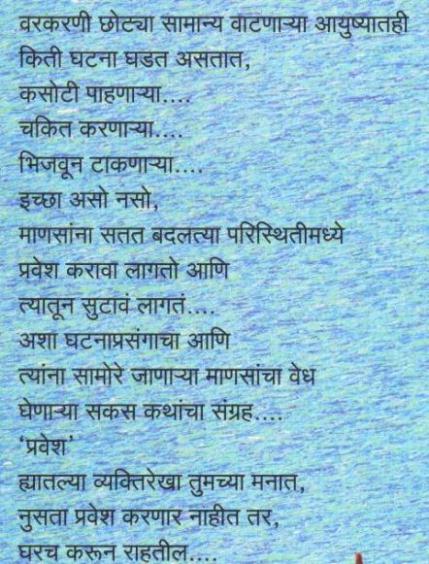 वरकरणी छोट्या सामान्य वाटणाऱ्या आयुष्यातही
किती घटना घडत असतात,
कसोटी पाहणाऱ्या....
चकित करणाऱ्या....
भिजवून टाकणाऱ्या....
इच्छा असो नसो,
माणसांना सतत बदलत्या परिस्थितीमध्ये
प्रवेश करावा लागतो आणि
त्यातून सुटावं लागतं....
अशा घटनाप्रसंगाचा आणि
त्यांना सामोरे जाणाऱ्या माणसांचा वेध
घेणाऱ्या सकस कथांचा संग्रह....
‘प्रवेश’
ह्यातल्या व्यक्तिरेखा तुमच्या मनात,
नुसता प्रवेश करणार नाहीत तर,
घरच करून राहतील....